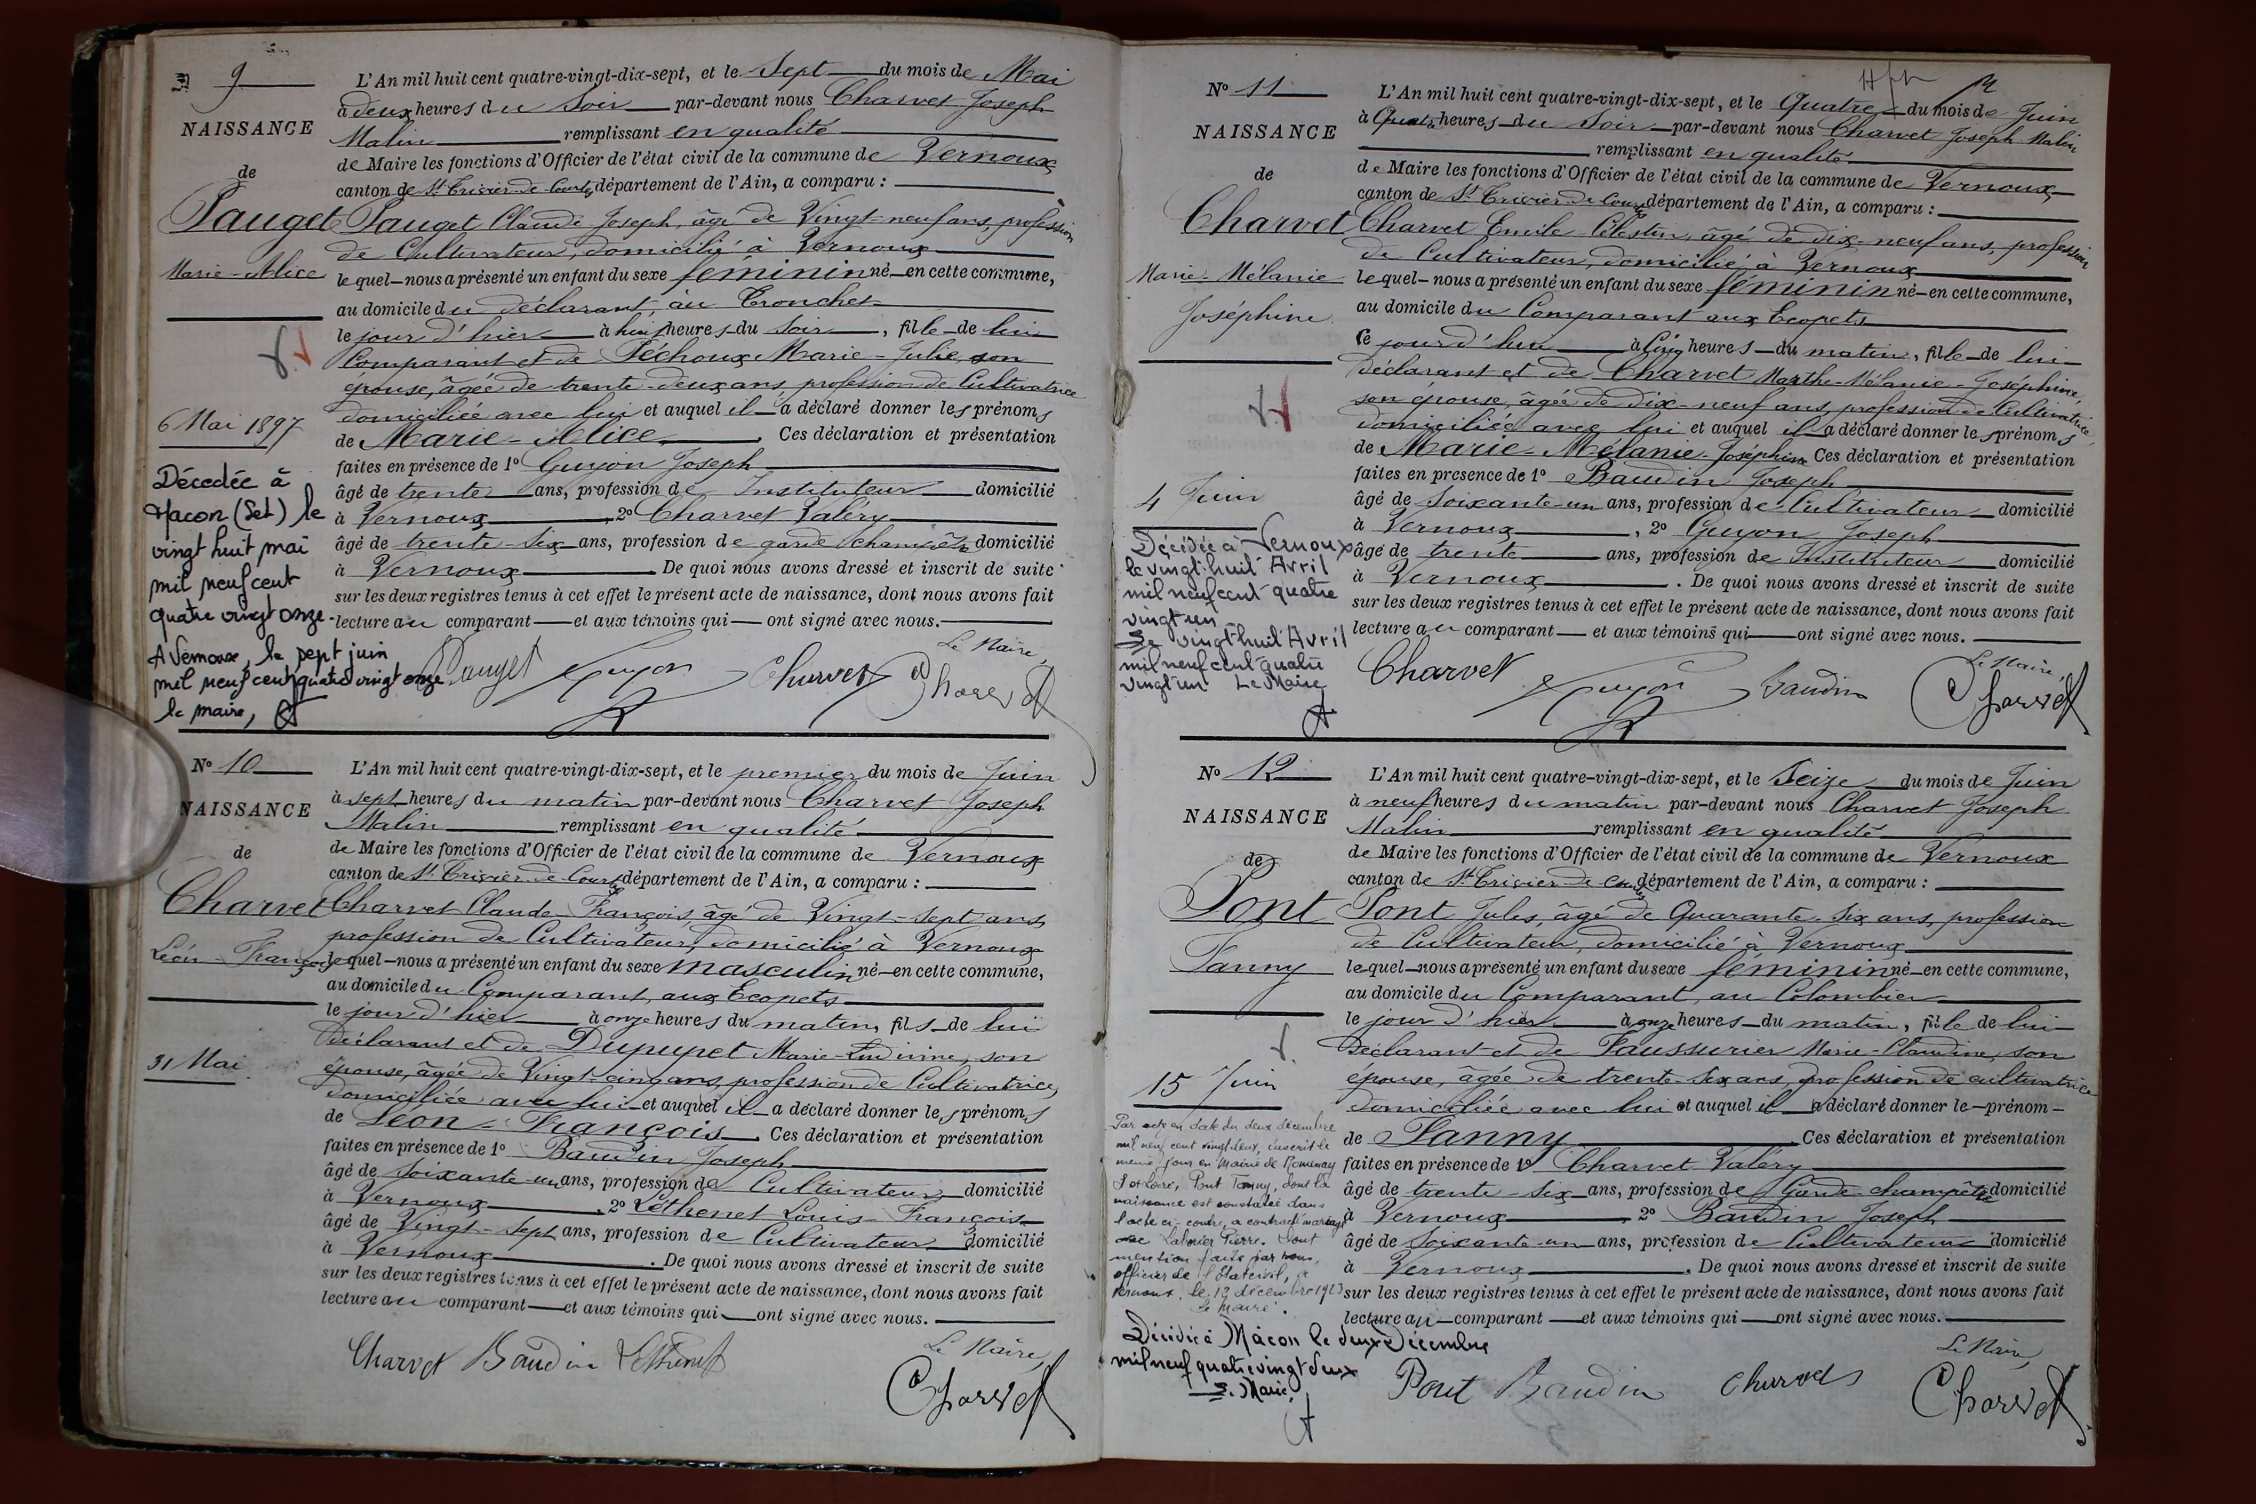 N° 9
NAISSANCE
de
Pauget
Marie-Alice
6 Mai 1897
Décedée à
Macon (S et L) le
vingt huit mai
mil neuf cent
quatre vingt onze
A Vernoux, le sept juin
mil neuf cent quatre vingt onze
le maire,
L'An mil huit cent quatre-vingt-dix-sept, et le Sept du mois de Mai
à deux heures du Soir par-devant nous Charvet Joseph
Malin remplissant en qualité
de Maire les fonctions d'Officier de l'état civil de la commune de Vernoux
canton de St Trivier de Courtes département de l'Ain, a comparu :
Pauget Claude Joseph, âgé de Vingt-neuf ans, profession
de Cultivateur, domicilié à Vernoux
lequel nous a présenté un enfant du sexe féminin né en cette commune,
au domicile du déclarant, au Tronchet
le jour d'hier à huit heures du Soir, fille de lui
Comparant et de Péchoux Marie-Julie son
épouse, âgée de trente-deux ans profession de Cultivatrice
domiciliée avec lui et auquel il a déclaré donner les prénoms
de Marie-Alice. Ces déclaration et présentation
faites en présence de 1° Guyon Joseph
âgé de trente ans, profession de Instituteur domicilié
à Vernoux 2° Charvet Valéry
âgé de trente-six ans, profession de garde champêtre domicilié
à Vernoux De quoi nous avons dressé et inscrit de suite
sur les deux registres tenus à cet effet le présent acte de naissance, dont nous avons fait
lecture au comparant et aux témoins qui ont signé avec nous.
Le Maire,
Pauget Guyon Charvet Charvet
N° 10
NAISSANCE
de
Charvet
Léon-François
31 Mai
L'An mil huit cent quatre-vingt-dix-sept, et le premier du mois de Juin
à sept heures du matin par-devant nous Charvet Joseph
Malin remplissant en qualité
de Maire les fonctions d'Officier de l'état civil de la commune de Vernoux
canton de St Trivier de Courtes département de l'Ain, a comparu :
Charvet Claude-François, âgé de Vingt-sept ans,
profession de Cultivateur, domicilié à Vernoux
lequel nous a présenté un enfant du sexe masculin né en cette commune,
au domicile du Comparant, aux Ecopets
le jour d'hier à onze heures du matin, fils de lui
déclarant et de Dupupet Marie-Ludivine, son
épouse, âgée de Vingt-cinq ans, profession de Cultivatrice,
domiciliée avec lui et auquel il a déclaré donner les prénoms
de Léon-François. Ces déclaration et présentation
faites en présence de 1° Baudin Joseph
âgé de soixante-un ans, profession de Cultivateur domicilié
à Vernoux 2° Léthenet Louis-François
âgé de Vingt-sept ans, profession de Cultivateur domicilié
à Vernoux. De quoi nous avons dressé et inscrit de suite
sur les deux registres tenus à cet effet le présent acte de naissance, dont nous avons fait
lecture au comparant et aux témoins qui ont signé avec nous.
Le Maire,
Charvet Baudin Léthenet
Charvet
N° 11
NAISSANCE
de
Charvet
Marie-Mélanie
Joséphine
4 Juin
Décédée à Vernoux
le vingt-huit Avril
mil neuf cent quatre
vingt un
Le vingt-huit Avril
mil neuf cent quatre
vingt un Le Maire
L'An mil huit cent quatre-vingt-dix-sept, et le Quatre du mois de Juin
à Quatre heures du Soir par-devant nous Charvet Joseph Malin
remplissant en qualité
de Maire les fonctions d'Officier de l'état civil de la commune de Vernoux
canton de St Trivier de Courtes département de l'Ain, a comparu :
Charvet Emile Célestin, âgé de dix-neuf ans, profession
de Cultivateur, domicilié à Vernoux
lequel nous a présenté un enfant du sexe féminin né en cette commune,
au domicile du Comparant aux Ecopets
ce jour d'hui à cinq heures du matin, fille de lui
déclarant et de Charvet Marthe-Mélanie-Joséphine,
son épouse, âgée de dix-neuf ans, profession de Cultivatrice,
domiciliée avec lui et auquel il a déclaré donner les prénoms
de Marie-Mélanie-Joséphine Ces déclaration et présentation
faites en présence de 1° Baudin Joseph
âgé de soixante-un ans, profession de Cultivateur domicilié
à Vernoux, 2° Guyon Joseph
âgé de trente ans, profession de Instituteur domicilié
à Vernoux. De quoi nous avons dressé et inscrit de suite
sur les deux registres tenus à cet effet le présent acte de naissance, dont nous avons fait
lecture au comparant et aux témoins qui ont signé avec nous.
Le Maire,
Charvet Guyon Baudin Charvet
N° 12
NAISSANCE
de
Pont
Fanny
15 Juin
Par acte en date du deux décembre
mil neuf cent vingt-deux, inscrit le
même jour en Mairie de Romenay
S et Loire, Pont Fanny, dont la
naissance est constatée dans
l'acte ci-contre, a contracté mariage
avec Pierre. Dont
mention faite par nous,
officier de l'Etat civil, à
Vernoux, le 19 décembre 1923
Le Maire
Décédée à Mâcon le deux Décembre
mil neuf quatre vingt deux
Le Maire
L'An mil huit cent quatre-vingt-dix-sept, et le Seize du mois de Juin
à neuf heures du matin par-devant nous Charvet Joseph
Malin remplissant en qualité
de Maire les fonctions d'Officier de l'état civil de la commune de Vernoux
canton de St Trivier de Courtes département de l'Ain, a comparu :
Pont Jules, âgé de Quarante-six ans, profession
de Cultivateur, domicilié à Vernoux
lequel nous a présenté un enfant du sexe féminin né en cette commune,
au domicile du Comparant, au Colombier
le jour d'hier à onze heures du matin, fille de lui
déclarant et de Faussurier Marie-Claudine, son
épouse, âgée de trente-six ans, profession de cultivatrice
domiciliée avec lui et auquel il a déclaré donner le prénom
de Fanny Ces déclaration et présentation
faites en présence de 1° Charvet Valéry
âgé de trente-six ans, profession de Garde-champêtre domicilié
à Vernoux 2° Baudin Joseph
âgé de soixante-un ans, profession de Cultivateur domicilié
à Vernoux. De quoi nous avons dressé et inscrit de suite
sur les deux registres tenus à cet effet le présent acte de naissance, dont nous avons fait
lecture au comparant et aux témoins qui ont signé avec nous.
Le Maire,
Pont Baudin Charvet Charvet